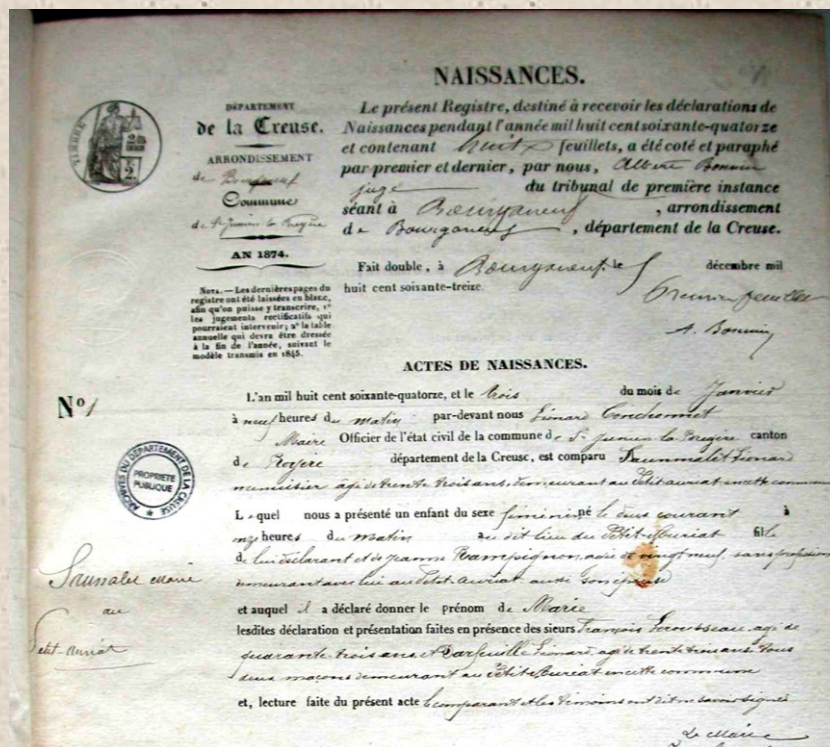 NAISSANCES.
DÉPARTEMENT
de la Creuse.
ARRONDISSEMENT
de Bourganeuf
Commune
de St Junien la Bregère
AN 1874.
NOTA. — Les dernières pages du
registre ont été laissées en blanc,
afin qu'on puisse y transcrire, 1°
les jugements rectificatifs qui
pourraient intervenir; 2° la table
annuelle qui devra être dressée
à la fin de l'année, suivant le
modèle transmis en 1845.
TIMBRE
Le présent Registre, destiné à recevoir les déclarations de
Naissances pendant l'année mil huit cent soixante-quatorze
et contenant huit feuillets, a été coté et paraphé
par premier et dernier, par nous, Albert Bonnin
juge du tribunal de première instance
séant à Bourganeuf, arrondissement
de Bourganeuf, département de la Creuse.
Fait double, à Bourganeuf, le 5 décembre mil
huit cent soixante-treize.
Premier feuillet
A. Bonnin
ACTES DE NAISSANCES.
No 1
L'an mil huit cent soixante-quatorze, et le trois du mois de Janvier
à neuf heures du matin par-devant nous Léonard
Maire Officier de l'état civil de la commune de St Junien la Bregère canton
de Royère département de la Creuse, est comparu Léonard
menuisier âgé de trente trois ans, demeurant au Petit auriat en cette commune
Lequel nous a présenté un enfant du sexe féminin né le deux courant à
onze heures du matin au dit lieu du Petit auriat fille
de lui déclarant et de Jeanne Rampignon, agée de vingt neuf, sans profession
demeurant avec lui au Petit auriat aussi son épouse
et auquel il a déclaré donner le prénom de Marie
lesdites déclaration et présentation faites en présence des sieurs François agé de
quarante trois ans et Darfeuille Léonard, agé de trente trois ans tous
deux maçons demeurant au Petit auriat en cette commune
et, lecture faite du présent acte le comparant et les témoins ont dit ne savoir signer
Le Maire
Marie
au
Petit-auriat
ARCHIVES DU DÉPARTEMENT DE LA CREUSE
PROPRIÉTÉ
PUBLIQUE